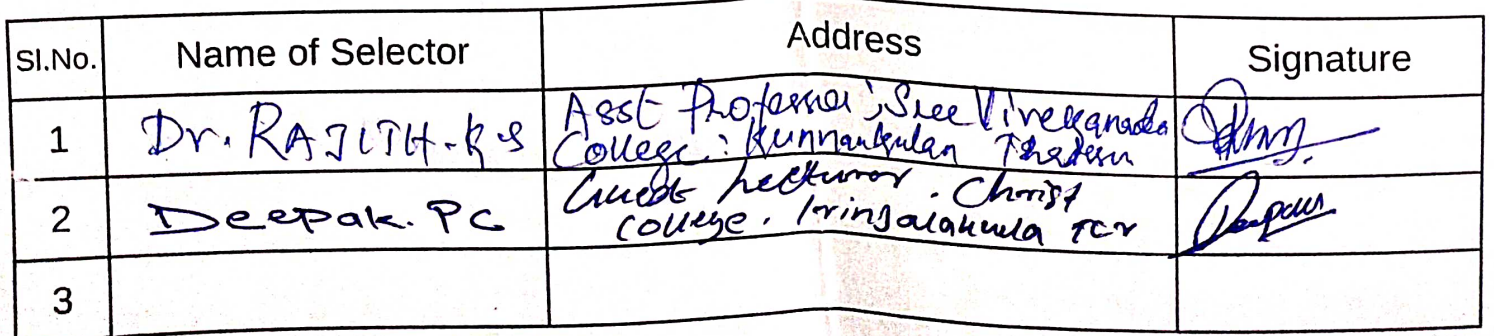 Sl.No. Name of Selector Address Signature
1 Dr. RAJITH.K.S Asst Professor, Sree Vivekananda
College: Kunnamkulam
2 Deepak. PC Guest Lecturer. Christ
College. Iringalakuda TCR
3